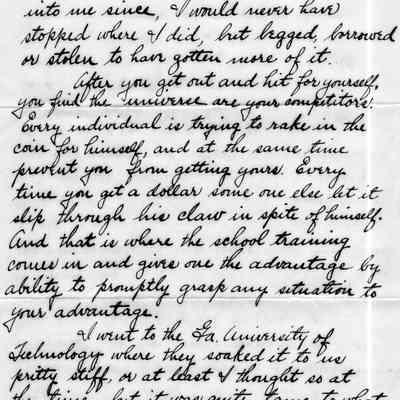 into me since, I would never have
stopped where I did, but begged, borrowed
or stolen to have gotten more of it.
After you get out and hit for yourself,
you find the universe are your competitors.
Every individual is trying to rake in the
coin for himself, and at the same time
prevent you from getting yours. Every
time you get a dollar some one else let it
slip through his claw in spite of himself.
And that is where the school training
comes in and gives one the advantage by
ability to promptly grasp any situation to
your advantage.
I went to the Ga. University of
Technology where they soaked it to us
pretty stiff, or at least I thought so at
the time, but it was quite tame to what